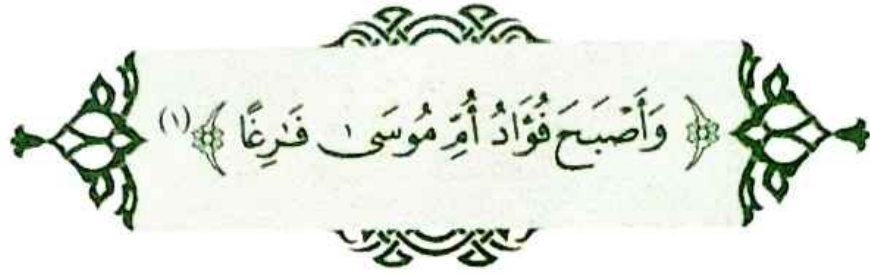 ﴿ وَأَصْبَحَ فُؤَادُ أُمِّ مُوسَىٰ فَـٰرِغًا ﴾(١)